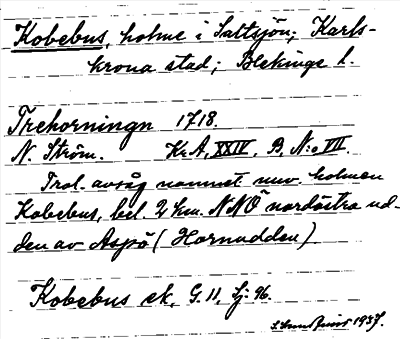 Kobebus, holme i Saltsjön; Karls-
krona stad; Blekinge l.
Trehorningn 1718.
N. Ström. Kr.A, XXIV, B, N:o VII.
Trol. avsåg namnet nuv. holmen
Kobebus, bel. 2 km. NNÖ nordöstra ud-
den av Aspö (Hornudden)
Kobebus ek. G. 11, Sj: 96.
1937.